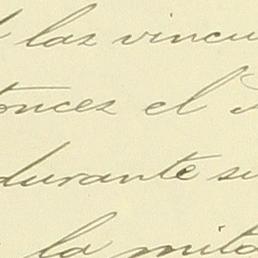 las vincu
tonces el
durante su
la mita